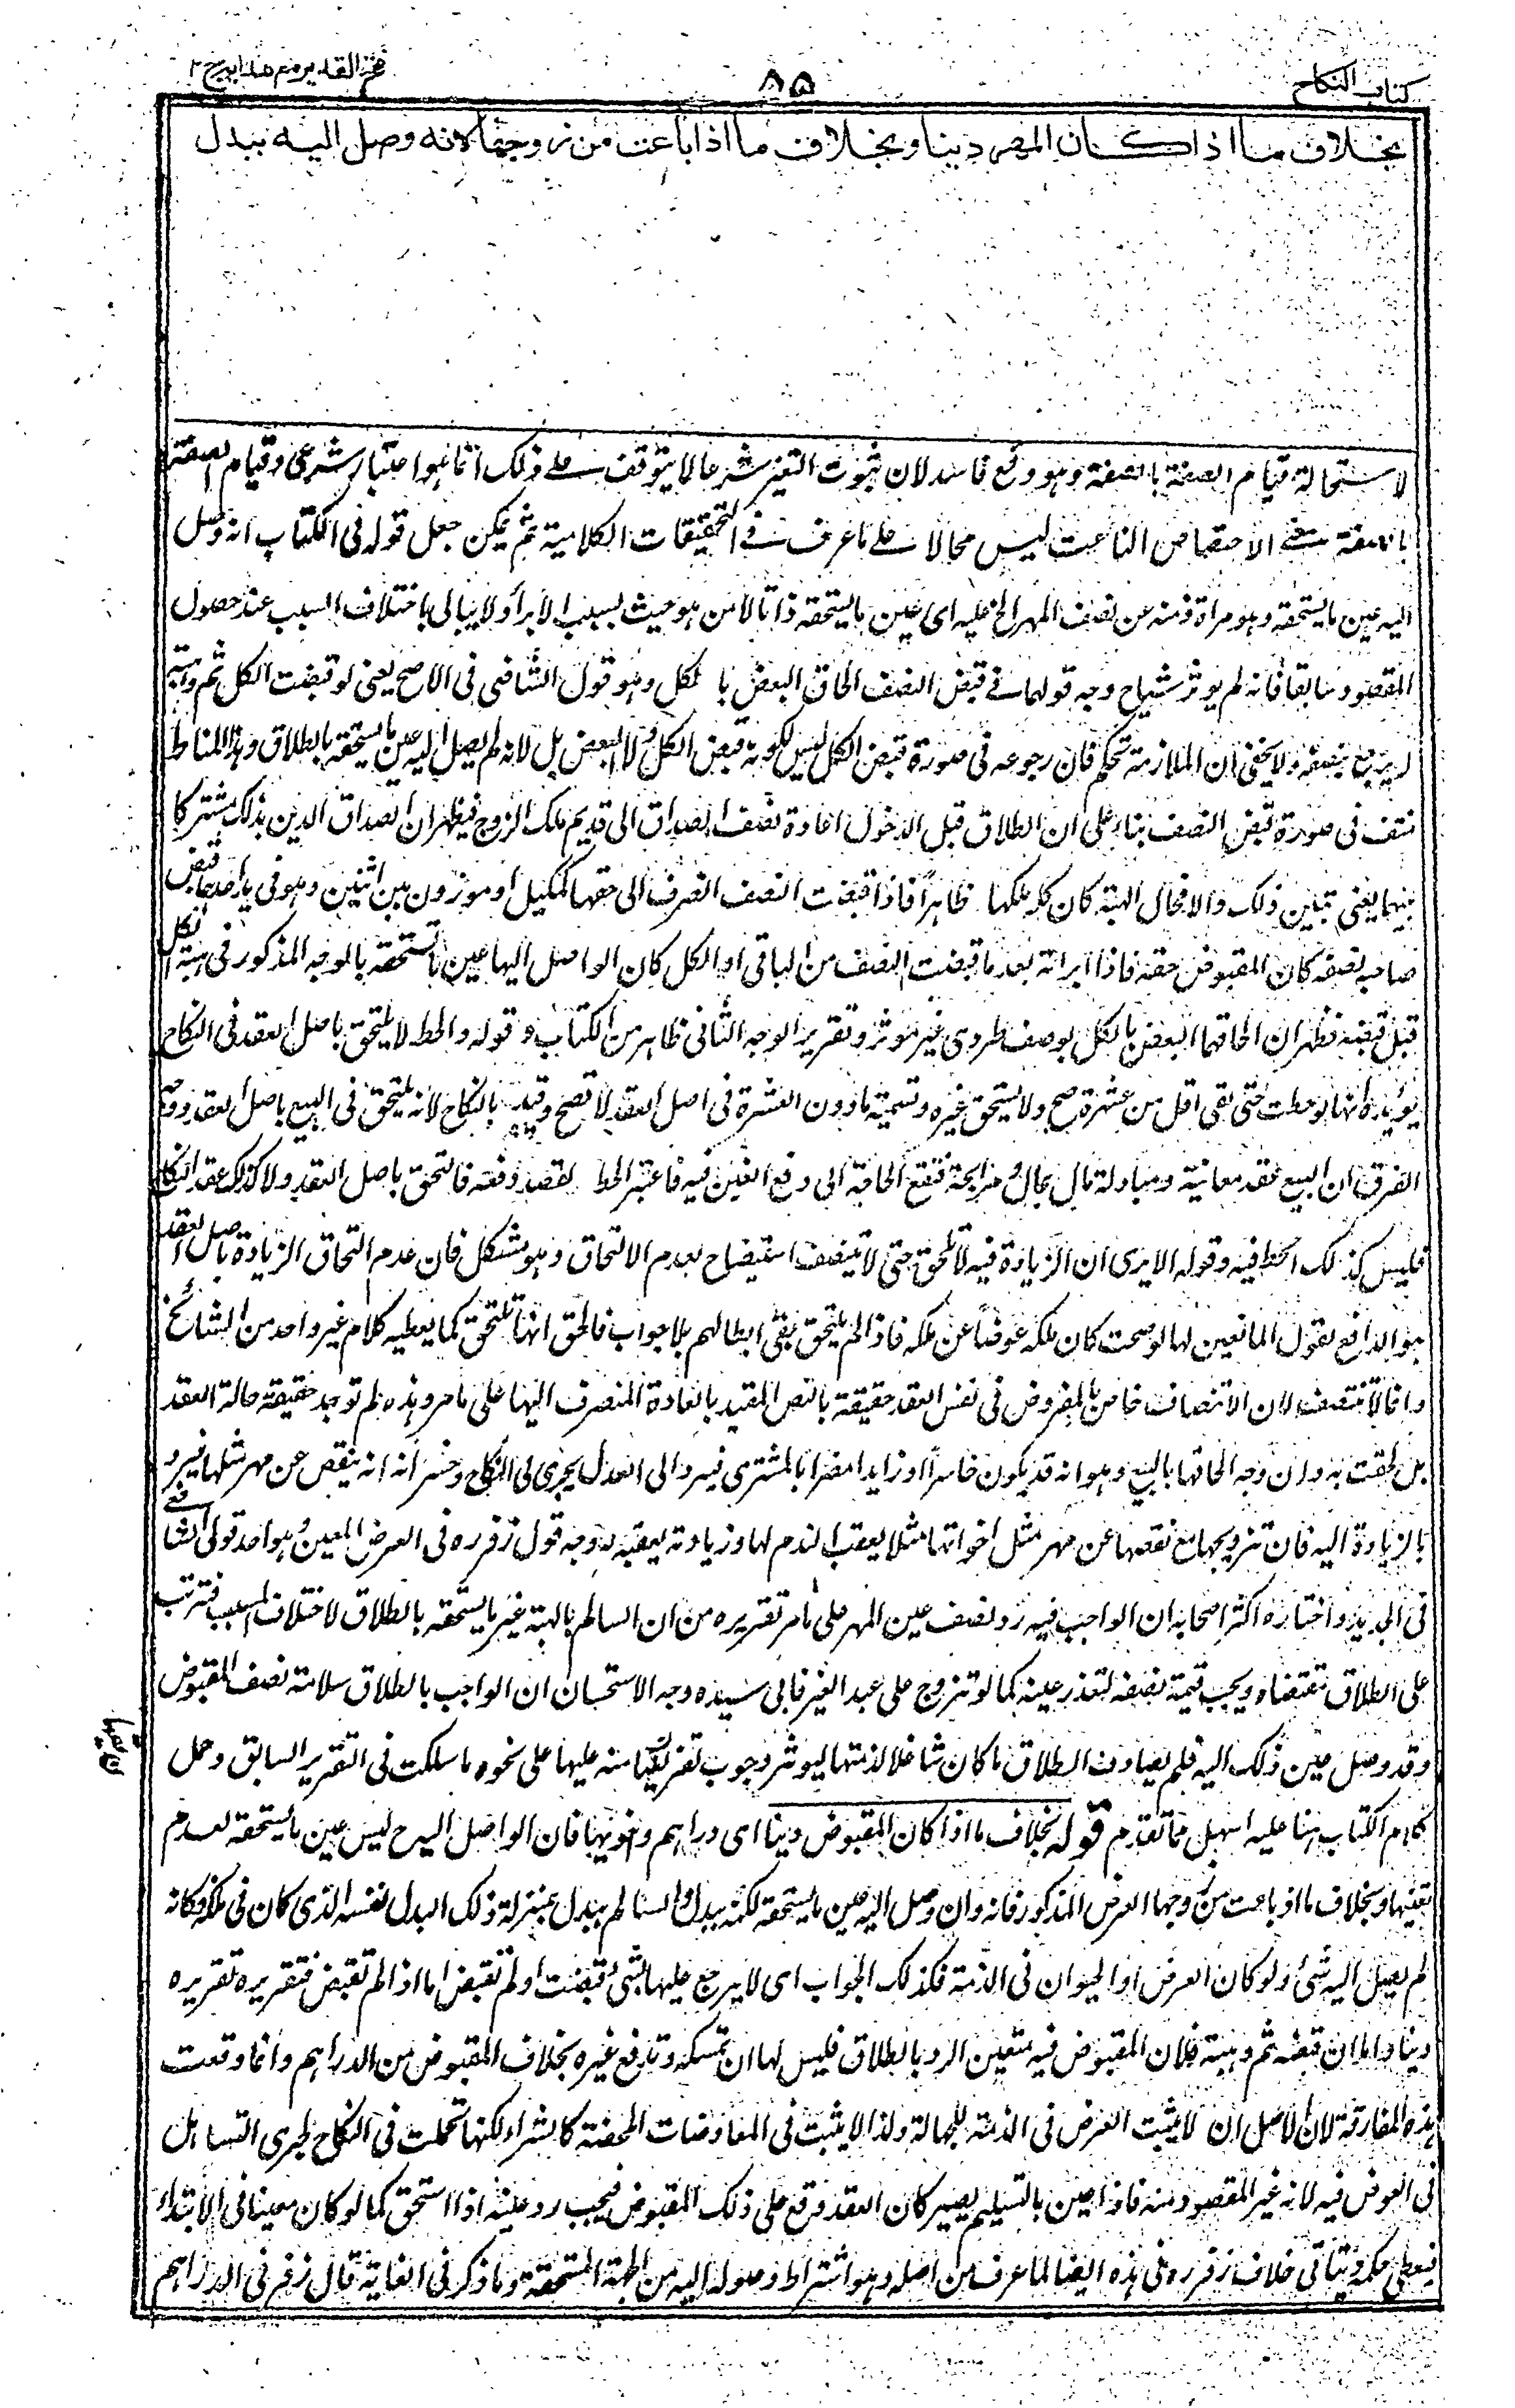 كتاب النكاح
٨٥
فتح القدير مع هداية ج ٢
بخلاف ما اذا كان المهر دينا وبخلاف ما اذا باعت من زوجها لانه وصل اليه ببدل
لاستحالة قيام الصفة بالصفة وهو دفع فاسد لان ثبوت التغير شرعا لا يتوقف على ذلك انما هو اعتبار شرعى وقيام الصفة
بالصفة بمعنى الاختصاص الناعت ليس محالا على ما عرف فى التحقيقات الكلامية ثم يمكن جعل قوله فى الكتاب انه وصل
اليه عين ما يستحقه وهو براة ذمته عن نصف المهر الخ عليه اى عين ما يستحقه ذاتا لا من هو حيث بسبب الابرأ ولا يبالى باختلاف السبب عند حصول
المقصود سابقا فانه لم يوثر شيأ ح وجه قولهما فى قبض النصف الحاق البعض بالكل وهو قول الشافعى فى الاصح يعنى لو قبضت الكل ثم وهبته
يرجع بنصفه ولا يخفى ان الملازمة تحكم فان رجوعه فى صورة قبض الكل ليس لكونه قبض الكل ولا البعض بل لانه لم يصل اليه عين ما يستحقه بالطلاق وهذا المناط
منتف فى صورة قبض النصف بناء على ان الطلاق قبل الدخول اعادة نصف الصداق الى قديم ملك الزوج فيظهر ان الصداق الدين بذلك مشتركا
بينهما يعنى تبين ذلك والا فحال الهبة كان كله ملكها ظاهرا فاذا قبضت النصف انصرف الى حقها كمكيل او موزون بين اثنين وهو فى يد احدهما قبض
صاحبه نصفه كان المقبوض حقه فاذا ابرأته بعد ما قبضت النصف من الباقى او الكل كان الواصل اليها عين ما تستحقه بالوجه المذكور فى هبة الكل
قبل قبضه فظهر ان الحاقهما البعض بالكل بوصف طردى غير مؤثر وتقرير الوجه الثانى ظاهر من الكتاب وقوله والحط لا يلتحق باصل العقد فى النكاح
يؤيده انها لو حطت حتى بقى اقل من عشرة صح ولا يستحق غيره وتسمية ما دون العشرة فى اصل العقد لا تصح وقيد بالنكاح لانه يلتحق فى البيع باصل العقد ووجه
الفرق ان البيع عقد مغابنة ومبادلة مال بمال ومرابحة فتقع الحاجة الى دفع الغبن فيه فاعتبر الحط لقصد دفعه فالتحق باصل العقد ولا كذلك عقد النكاح
فليس كذلك الحط فيه وقوله الا يرى ان الزيادة فيه لا تلحق حتى لا تتنصف استيضاح لعدم الالتحاق وهو مشكل فان عدم التحاق الزيادة باصل العقد
هو الدافع لقول المانعين لها لو صحت كان ملكه عوضا عن ملكه فاذا لم يلتحق بقى ابطالهم بلا جواب فالحق انها تلتحق كما يعطيه كلام غير واحد من المشائخ
وانما لا تتنصف لان الانتصاف خاص بالمفروض فى نفس العقد حقيقة بالنص المقيد بالعادة المنصرف اليها على ما مر وهذه لم توجد حقيقة حالة العقد
بل لحقت به وان وجه الحاقها بالبيع وهو انه قد يكون خاسرا او زايدا مضرا بالمشترى فيرد الى العدل يجرى فى النكاح وخسرانه انه ينقص عن مهر مثلها فيرد
بالزيادة اليه فان تزويجها مع نقصها عن مهر مثل اخواتها مثلا يعقب الندم لها وزيادته يعقبه له وجه قول زفر ره فى العرض المعين وهو احد قولى الشافعى
فى الجديد واختاره اكثر اصحابه ان الواجب فيه رد نصف عين المهر على ما مر تقريره من ان السالم بالهبة غير ما يستحقه بالطلاق لاختلاف السبب فترتب
على الطلاق مقتضاه ويجب قيمة نصفه لتعذر عينه كما لو تزوج على عبد الغير فابى سيده وجه الاستحسان ان الواجب بالطلاق سلامة نصف المقبوض
وقد وصل عين ذلك اليه فلم يصادف الطلاق ما كان شاغلا لذمتها ليوثر وجوب تفريغها منه عليها على نحوه ما سلكت فى التقرير السابق وحمل
كلام الكتاب هنا عليه اسهل مما تقدم قوله بخلاف ما اذا كان المقبوض دينا اى دراهم ونحويها فان الواصل اليه ح ليس عين ما يستحقه لعدم
تعينها وبخلاف ما اذ باعت من زوجها العرض المذكور فانه وان وصل اليه عين ما يستحقه لكنه ببدل والسالم ببدل بمنزلة ذلك البدل نفسه الذى كان فى ملكه فكانه
لم يصل اليه شئ ولو كان العرض او الحيوان فى الذمة فكذلك الجواب اى لا يرجع عليها بشئ قبضت او لم تقبض اما اذا لم تقبض فتقريره تقريره
دينا واما ان قبضته ثم وهبته فلان المقبوض فيه متعين الرد بالطلاق فليس لها ان تمسكه وتدفع غيره بخلاف المقبوض من الدراهم وانما وقعت
هذه المفارقة لان الاصل ان لا يثبت العرض فى الذمة للجهالة ولذا لا يثبت فى المعاوضات المحضة كالشراء لكنها تحملت فى النكاح لجرى التساهل
فى العوض فيه لانه غير المقصود منه فاذا عين بالتسليم يصير كان العقد وقع على ذلك المقبوض فيجب رد عينه اذا استحق كما لو كان معينا فى الابتداء
فيعطى حكمه ويتأتى خلاف زفر ره فى هذه ايضا لما عرف من اصله وهو اشتراط وصوله اليه من الجهة المستحقة وما ذكر فى الغاية قال زفر فى الدراهم